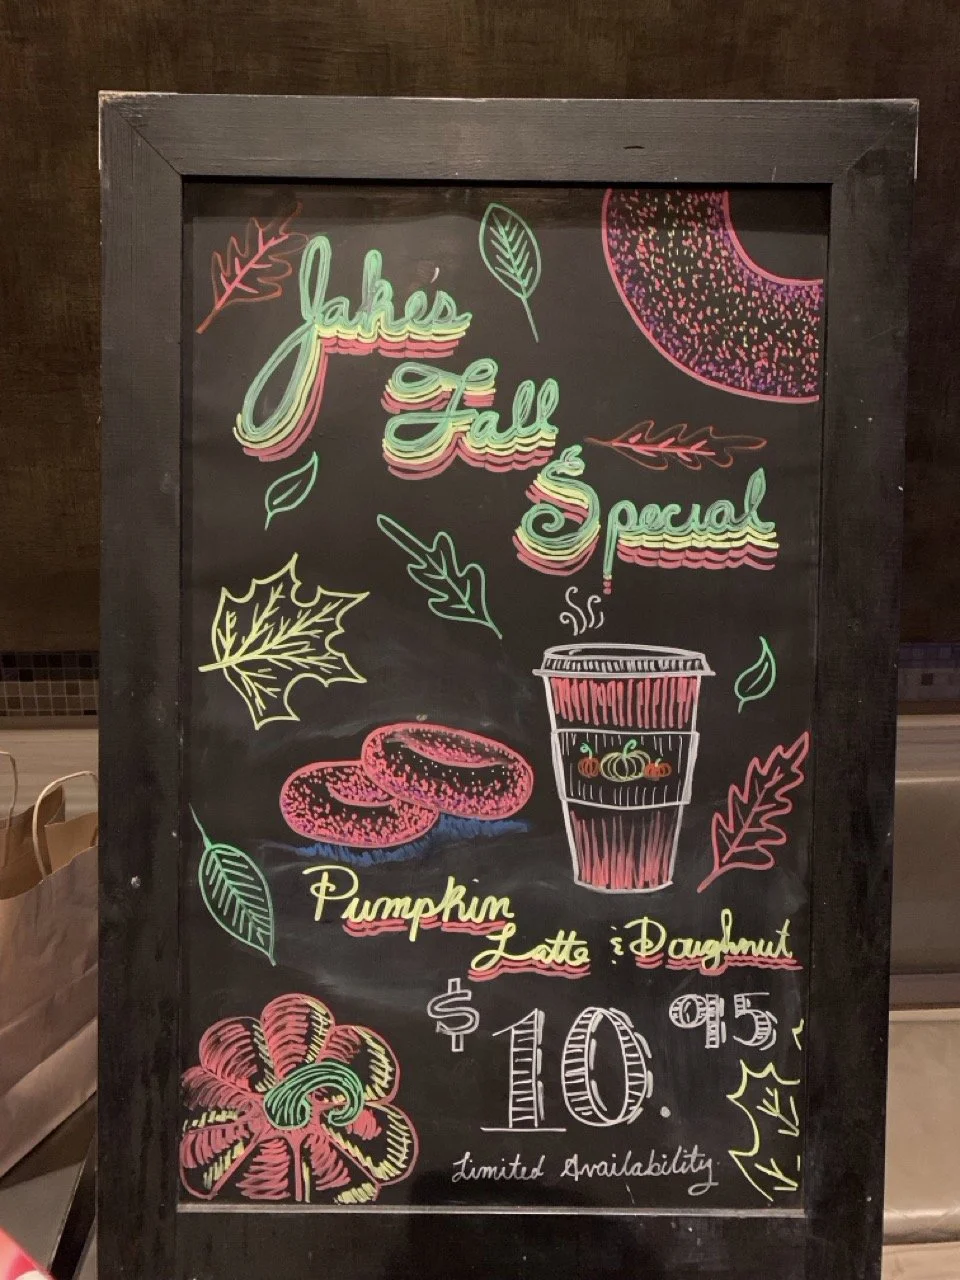 Jake's
Fall
Special
Pumpkin
Latte & Doughnut
$10.95
Limited Availability